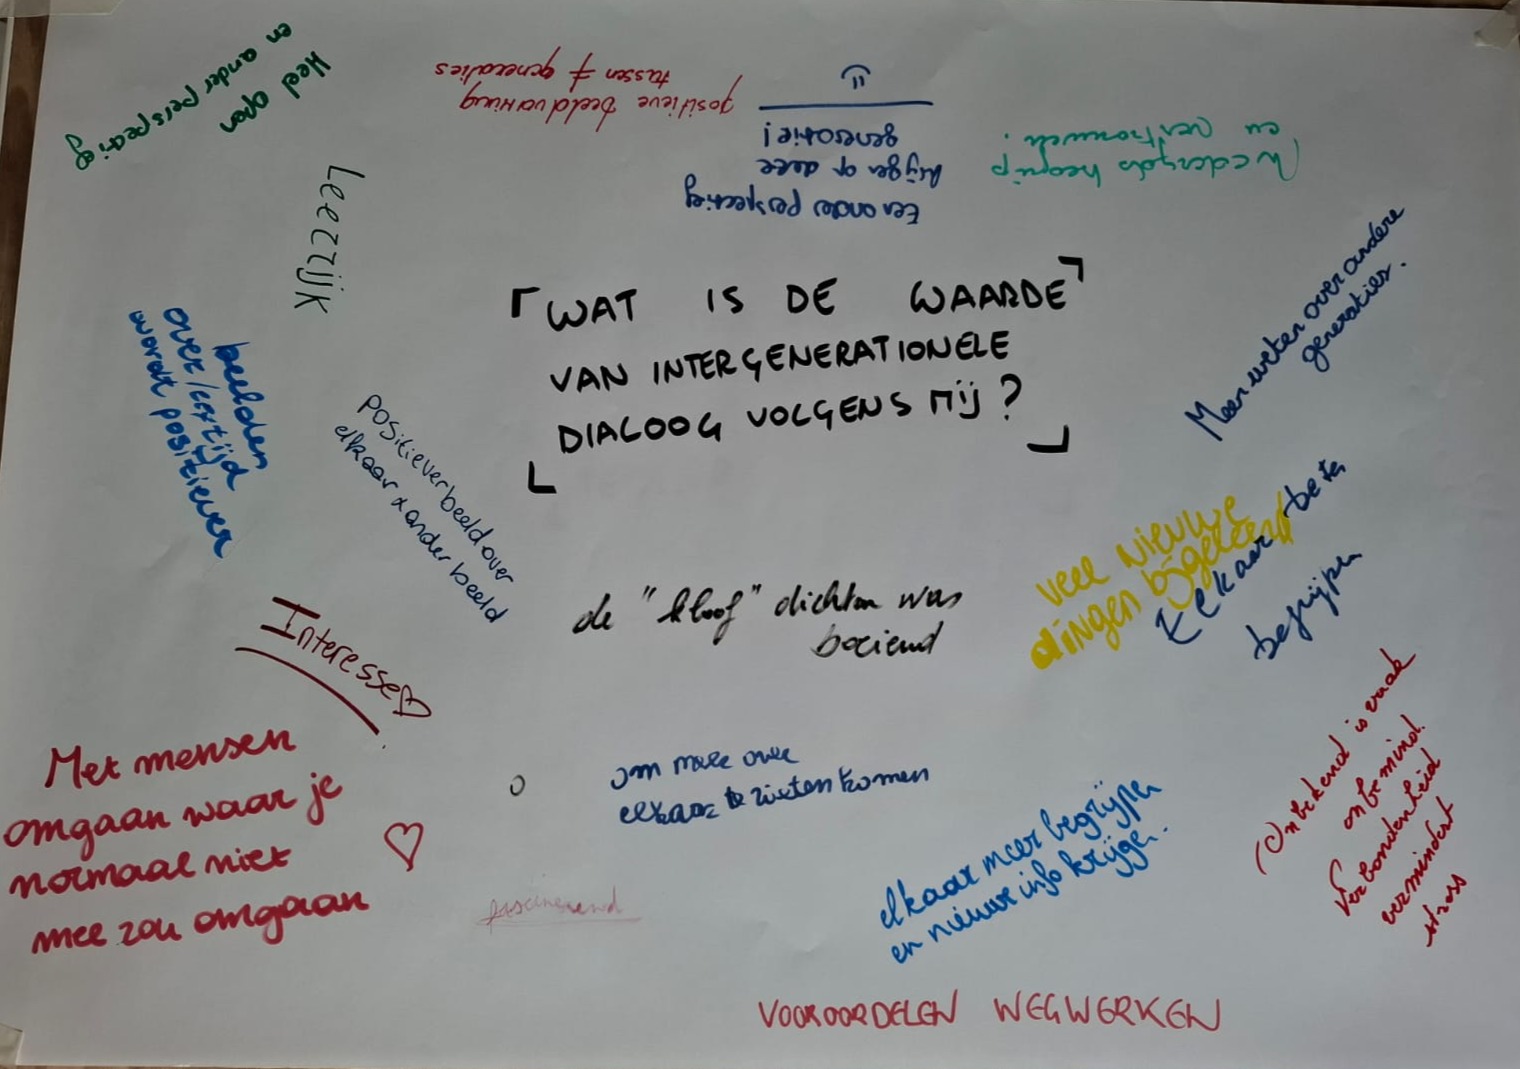 Heel open
en ander perspectief
positieve beeldvorming
tassen ≠ generaties
Een ander perspectief
krijgen op deze
generatie!
Wederzijds begrip
en vertrouwen.
Leerrijk
「WAT IS DE WAARDE
VAN INTERGENERATIONELE
DIALOOG VOLGENS MIJ?」
Meer weten over andere
generaties.
beelden
over leeftijd
wordt positiever
positiever beeld over
elkaar & ander beeld
veel nieuwe
dingen bijgeleerd
Elkaar beter
begrijpen
de "kloof" dichten was
boeiend
Interesse
Onbekend is vaak
onbemind.
Verbondenheid
vermindert
stress
Met mensen
omgaan waar je
normaal niet
mee zou omgaan
om meer over
elkaar te weten komen
elkaar meer begrijpen
en nieuwe info krijgen.
fascinerend
VOOROORDELEN WEGWERKEN